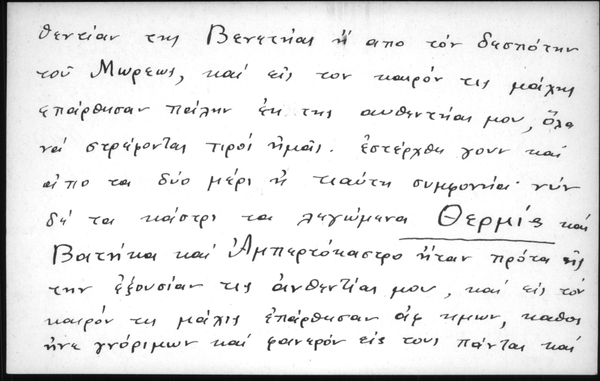 θεντίαν της Βενετήας ἤ απο τόν δεσπότην
τοῦ Μωρεως, καί εἰς τον καιρόν τις μάχης
επάρθησαν πάλην εκ της αυθεντήας μου, ὅλα
νά στρέφονται πρός ἡμᾶς. ἐστέρχθη γουν καί
απο τα δύο μέρι ἡ τιαύτη συμφονήα· νύν
δέ τα κάστρι τα λεγώμενα Θερμίς καί
Βατήκα καί Ἀμπερτόκαστρο ἦταν πρότα εἰς
την ἐξουσίαν τις αὐθεντίας μου, καί εἰς τόν
καιρόν τις μάχις ἐπάρθησαν ἀφ ημων, καθος
ήνε γνόριμων καί φανερόν εἰς τους πάντας καί